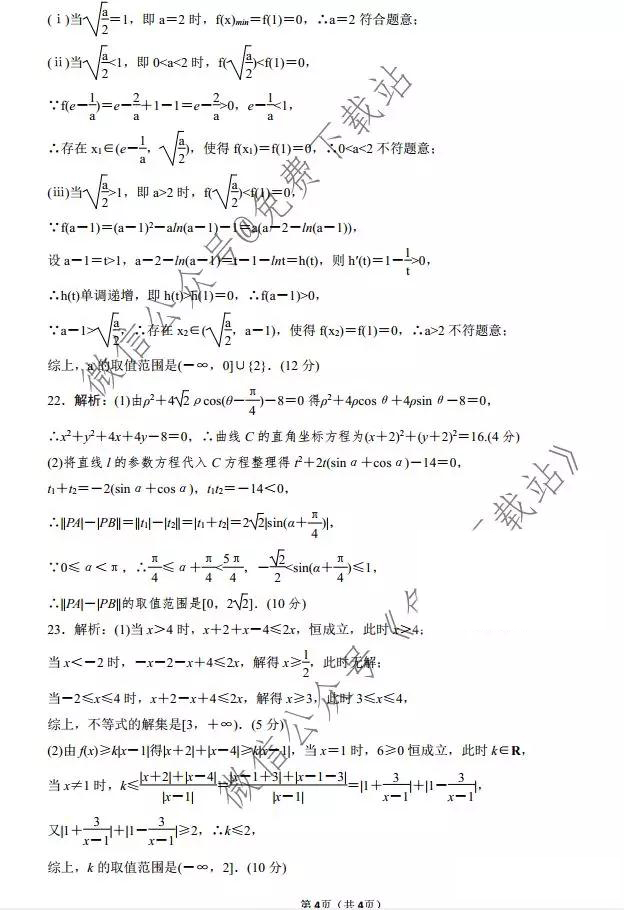 (ⅰ)当√(a/2)=1，即 a=2 时，f(x)min=f(1)=0，∴a=2 符合题意；
(ⅱ)当√(a/2)<1，即 0<a<2 时，f(√(a/2))<f(1)=0，
∵f(e－1/a)=e－2/a＋1－1=e－2/a>0，e－1/a<1，
∴存在 x₁∈(e－1/a，√(a/2))，使得 f(x₁)=f(1)=0，∴0<a<2 不符题意；
(ⅲ)当√(a/2)>1，即 a>2 时，f(√(a/2))<f(1)=0，
∵f(a－1)=(a－1)²－aln(a－1)－1=a(a－2－ln(a－1))，
设 a－1=t>1，a－2－ln(a－1)=t－1－lnt=h(t)，则 h′(t)=1－1/t>0，
∴h(t)单调递增，即 h(t)>h(1)=0，∴f(a－1)>0，
∵a－1>√(a/2)，∴存在 x₂∈(√(a/2)，a－1)，使得 f(x₂)=f(1)=0，∴a>2 不符题意；
综上，a 的取值范围是(－∞，0]∪{2}．(12 分)
22．解析：(1)由ρ²＋4√2ρcos(θ－π/4)－8=0 得ρ²＋4ρcos θ＋4ρsin θ－8=0，
∴x²＋y²＋4x＋4y－8=0，∴曲线 C 的直角坐标方程为(x＋2)²＋(y＋2)²=16.(4 分)
(2)将直线 l 的参数方程代入 C 方程整理得 t²＋2t(sin α＋cos α)－14=0，
t₁＋t₂=－2(sin α＋cos α)，t₁t₂=－14<0，
∴||PA|－|PB||=||t₁|－|t₂||=|t₁＋t₂|=2√2|sin(α＋π/4)|，
∵0≤α＜π，∴π/4≤α＋π/4<5π/4，－√2/2<sin(α＋π/4)≤1，
∴||PA|－|PB||的取值范围是[0，2√2]．(10 分)
23．解析：(1)当 x＞4 时，x＋2＋x－4≤2x，恒成立，此时 x＞4；
当 x＜－2 时，－x－2－x＋4≤2x，解得 x≥1/2，此时无解；
当－2≤x≤4 时，x＋2－x＋4≤2x，解得 x≥3，此时 3≤x≤4，
综上，不等式的解集是[3，＋∞)．(5 分)
(2)由 f(x)≥k|x－1|得|x＋2|＋|x－4|≥k|x－1|，当 x＝1 时，6≥0 恒成立，此时 k∈R，
当 x≠1 时，k≤(|x＋2|＋|x－4|)/|x－1|=(|x－1＋3|＋|x－1－3|)/|x－1|=|1＋3/(x－1)|＋|1－3/(x－1)|，
又|1＋3/(x－1)|＋|1－3/(x－1)|≥2，∴k≤2，
综上，k 的取值范围是(－∞，2]．(10 分)
第 4页（共 4页）
微信公众号@免费下载站
微信公众号《
载站》